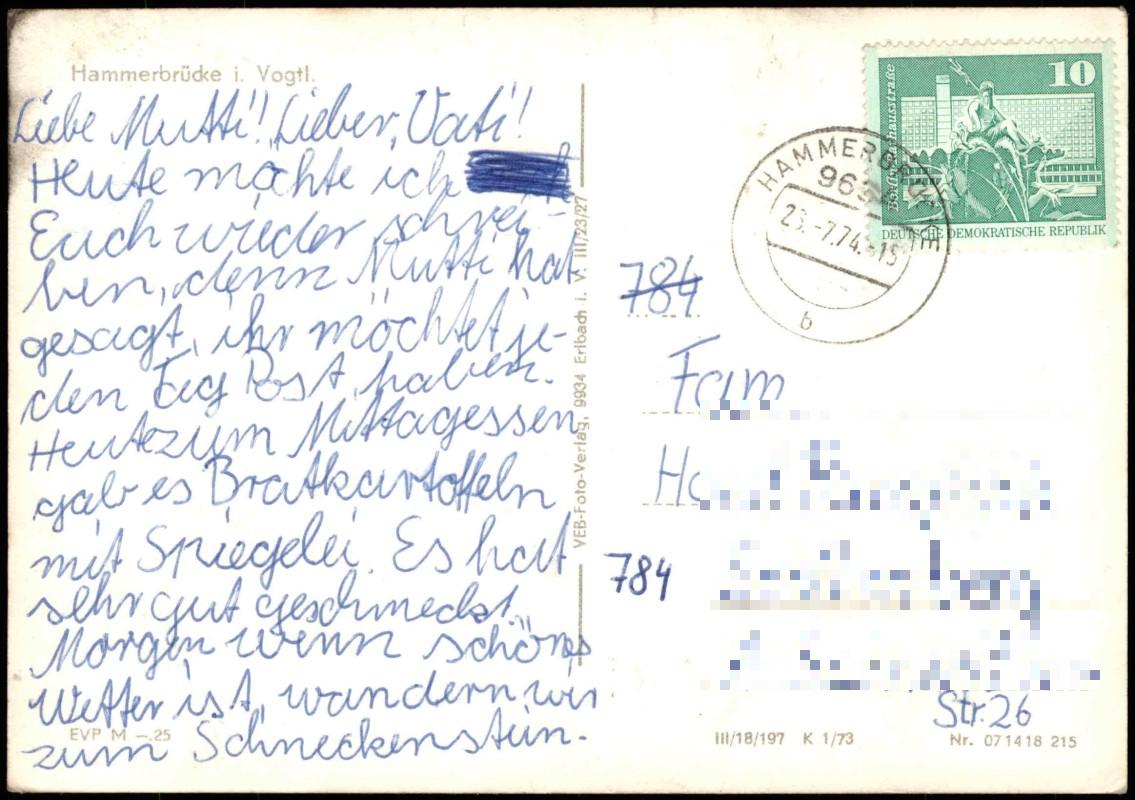 Hammerbrücke i. Vogtl.
Liebe Mutti! Lieber Vati!
Heute möchte ich
Euch wieder schrei-
ben, denn Mutti hat
gesagt, ihr möchtet je-
den Tag Post haben.
Heute zum Mittagessen
gab es Bratkartoffeln
mit Spiegelei. Es hat
sehr gut geschmeckt.
Morgen wenn schönes
Wetter ist, wandern wir
zum Schneckenstein.
EVP M –.25
VEB-Foto-Verlag, 9934 Erlbach i. V. III/23/27
10
DEUTSCHE DEMOKRATISCHE REPUBLIK
HAMMERBRÜCKE
23.-7.74.-15
b
784
Fam
784
Str. 26
III/18/197 K 1/73
Nr. 071418 215